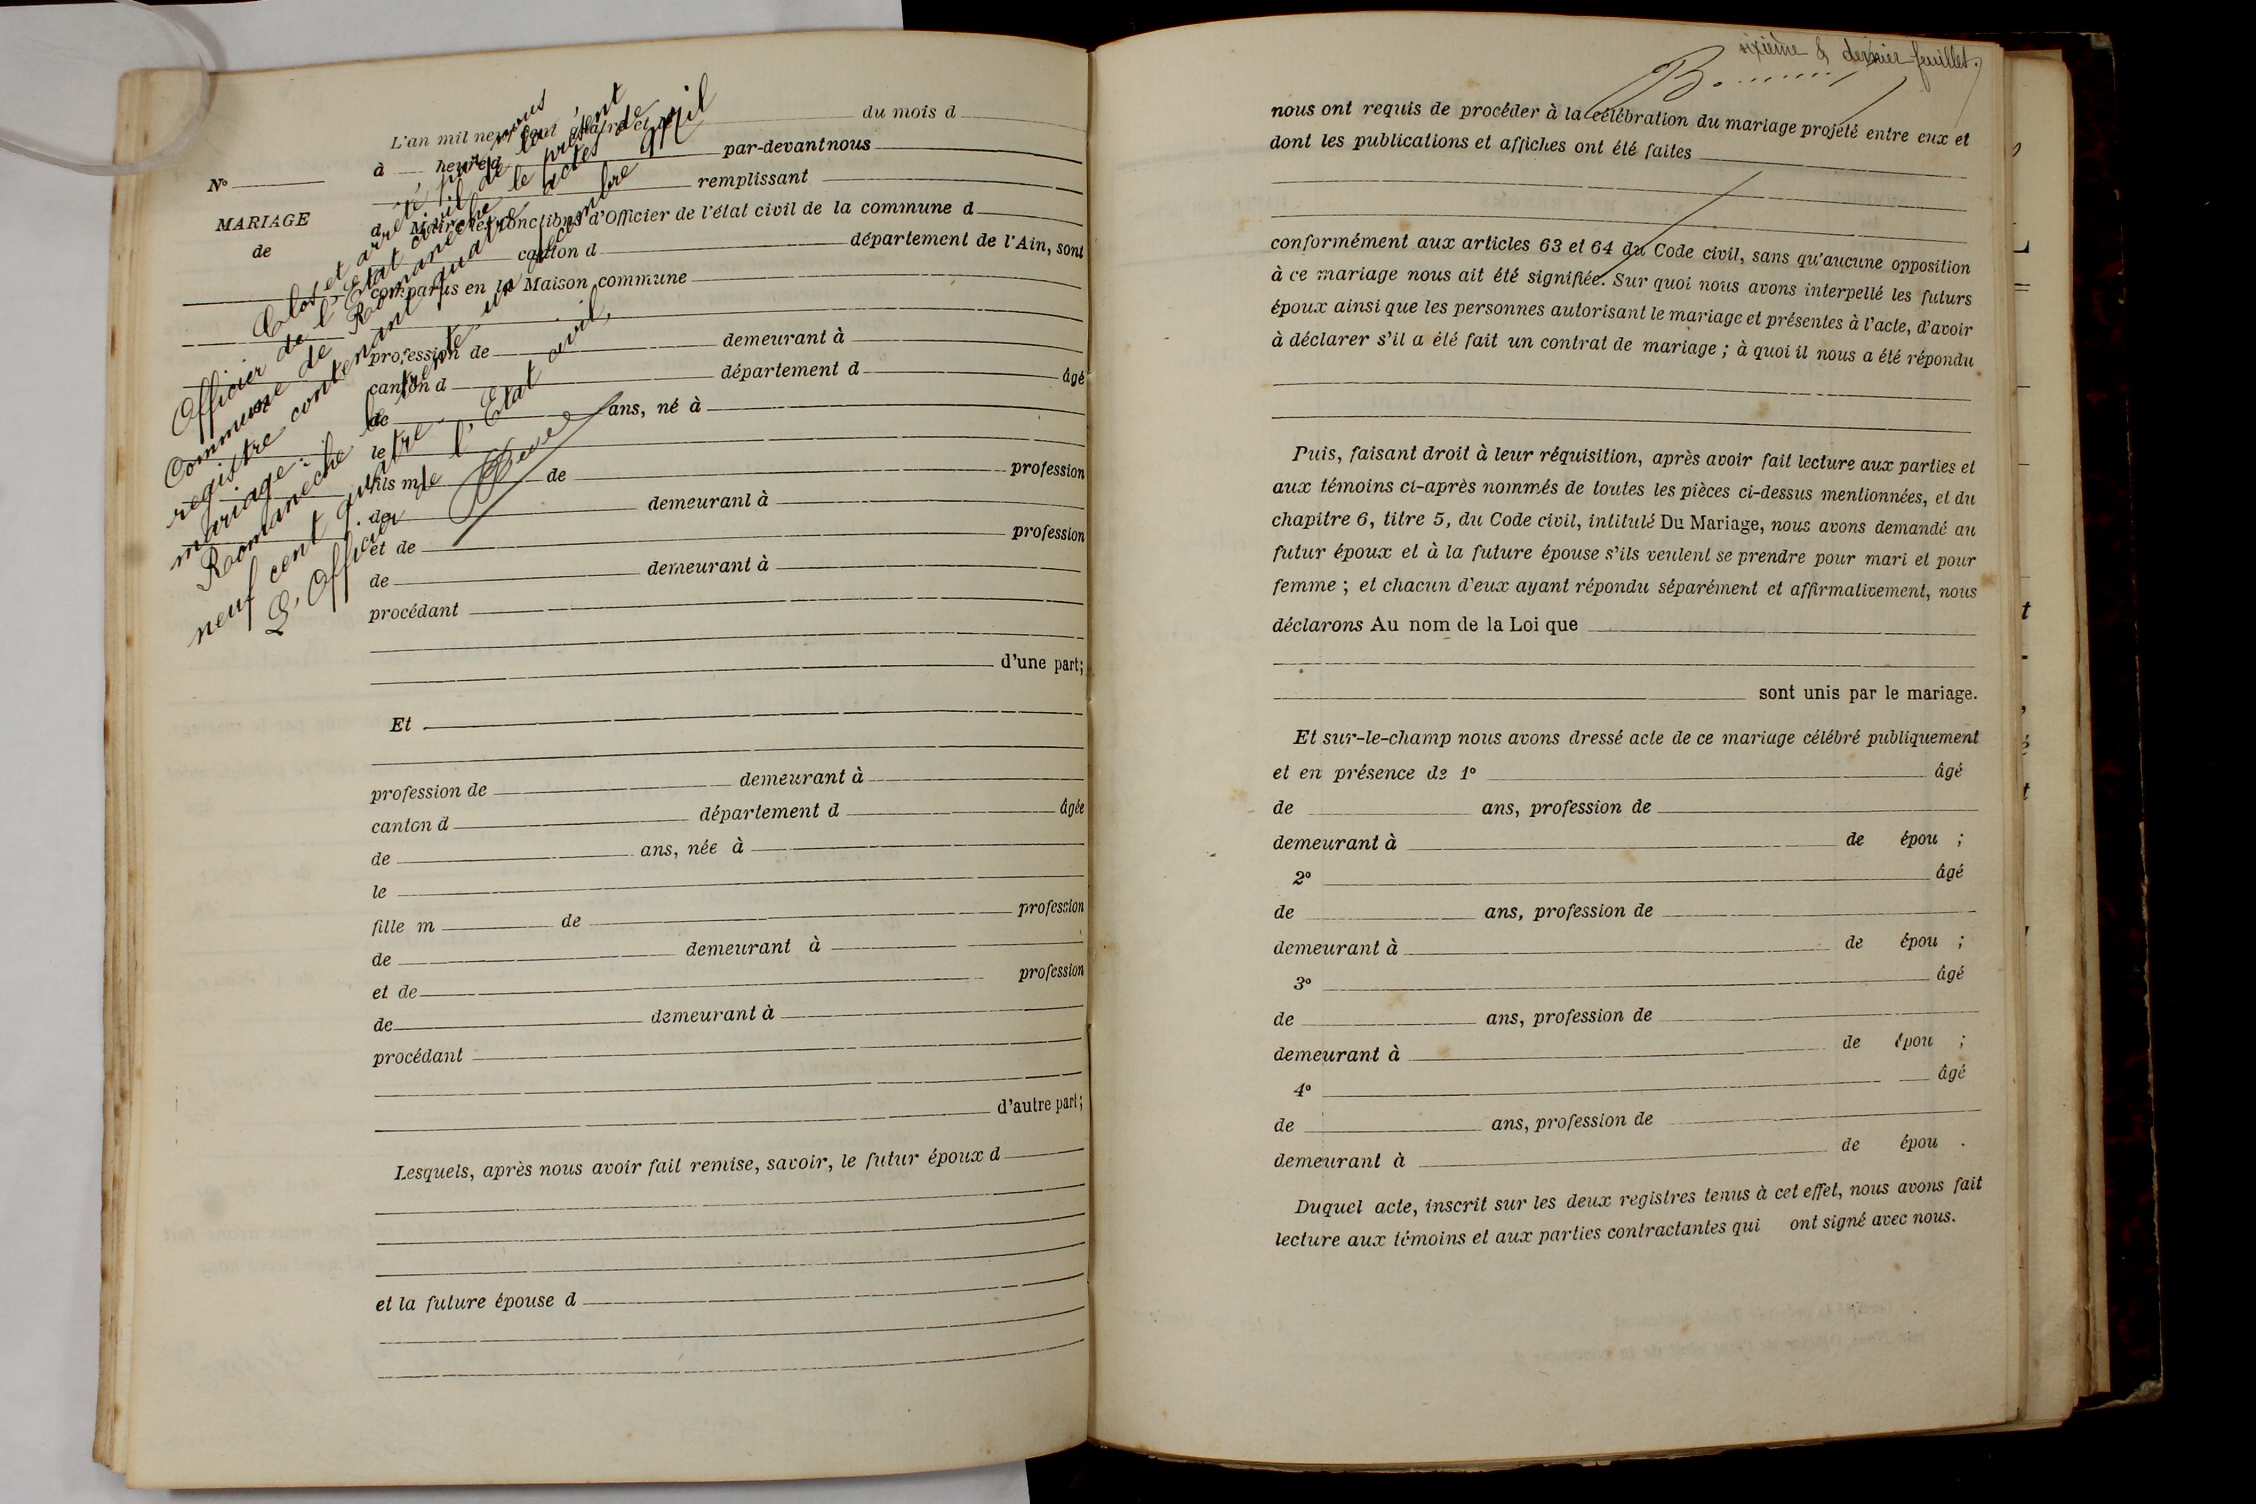 Clos et arrêté par nous
Officier de l'Etat civil de la
Commune de Romanèche le présent
registre contenant quatre actes de
mariage.
Romanèche le trente un décembre mil
neuf cent quatre.
L'Officier de l'Etat civil,
L'an mil neuf cent quatre et le du mois d
à heure par-devant nous
remplissant
d Maire les fonctions d'Officier de l'état civil de la commune d
canton d département de l'Ain, sont
comparus en la Maison commune
profession de demeurant à
canton d département d âgé
de ans, né à
le
fils m de profession
de demeurant à
et de profession
de demeurant à
procédant
d'une part;
Et
profession de demeurant à
canton d département d âgée
de ans, née à
le
fille m de profession
de demeurant à
et de profession
de demeurant à
procédant
d'autre part;
Lesquels, après nous avoir fait remise, savoir, le futur époux d
et la future épouse d
No
MARIAGE
de
sixième & dernier feuillet.
nous ont requis de procéder à la célébration du mariage projeté entre eux et
dont les publications et affiches ont été faites
conformément aux articles 63 et 64 du Code civil, sans qu'aucune opposition
à ce mariage nous ait été signifiée. Sur quoi nous avons interpellé les futurs
époux ainsi que les personnes autorisant le mariage et présentes à l'acte, d'avoir
à déclarer s'il a été fait un contrat de mariage ; à quoi il nous a été répondu
Puis, faisant droit à leur réquisition, après avoir fait lecture aux parties et
aux témoins ci-après nommés de toutes les pièces ci-dessus mentionnées, et du
chapitre 6, titre 5, du Code civil, intitulé Du Mariage, nous avons demandé au
futur époux et à la future épouse s'ils veulent se prendre pour mari et pour
femme ; et chacun d'eux ayant répondu séparément et affirmativement, nous
déclarons Au nom de la Loi que
sont unis par le mariage.
Et sur-le-champ nous avons dressé acte de ce mariage célébré publiquement
et en présence de 1º âgé
de ans, profession de
demeurant à de épou ;
2º âgé
de ans, profession de
demeurant à de épou ;
3º âgé
de ans, profession de
demeurant à de épou ;
4º âgé
de ans, profession de
demeurant à de épou .
Duquel acte, inscrit sur les deux registres tenus à cet effet, nous avons fait
lecture aux témoins et aux parties contractantes qui ont signé avec nous.